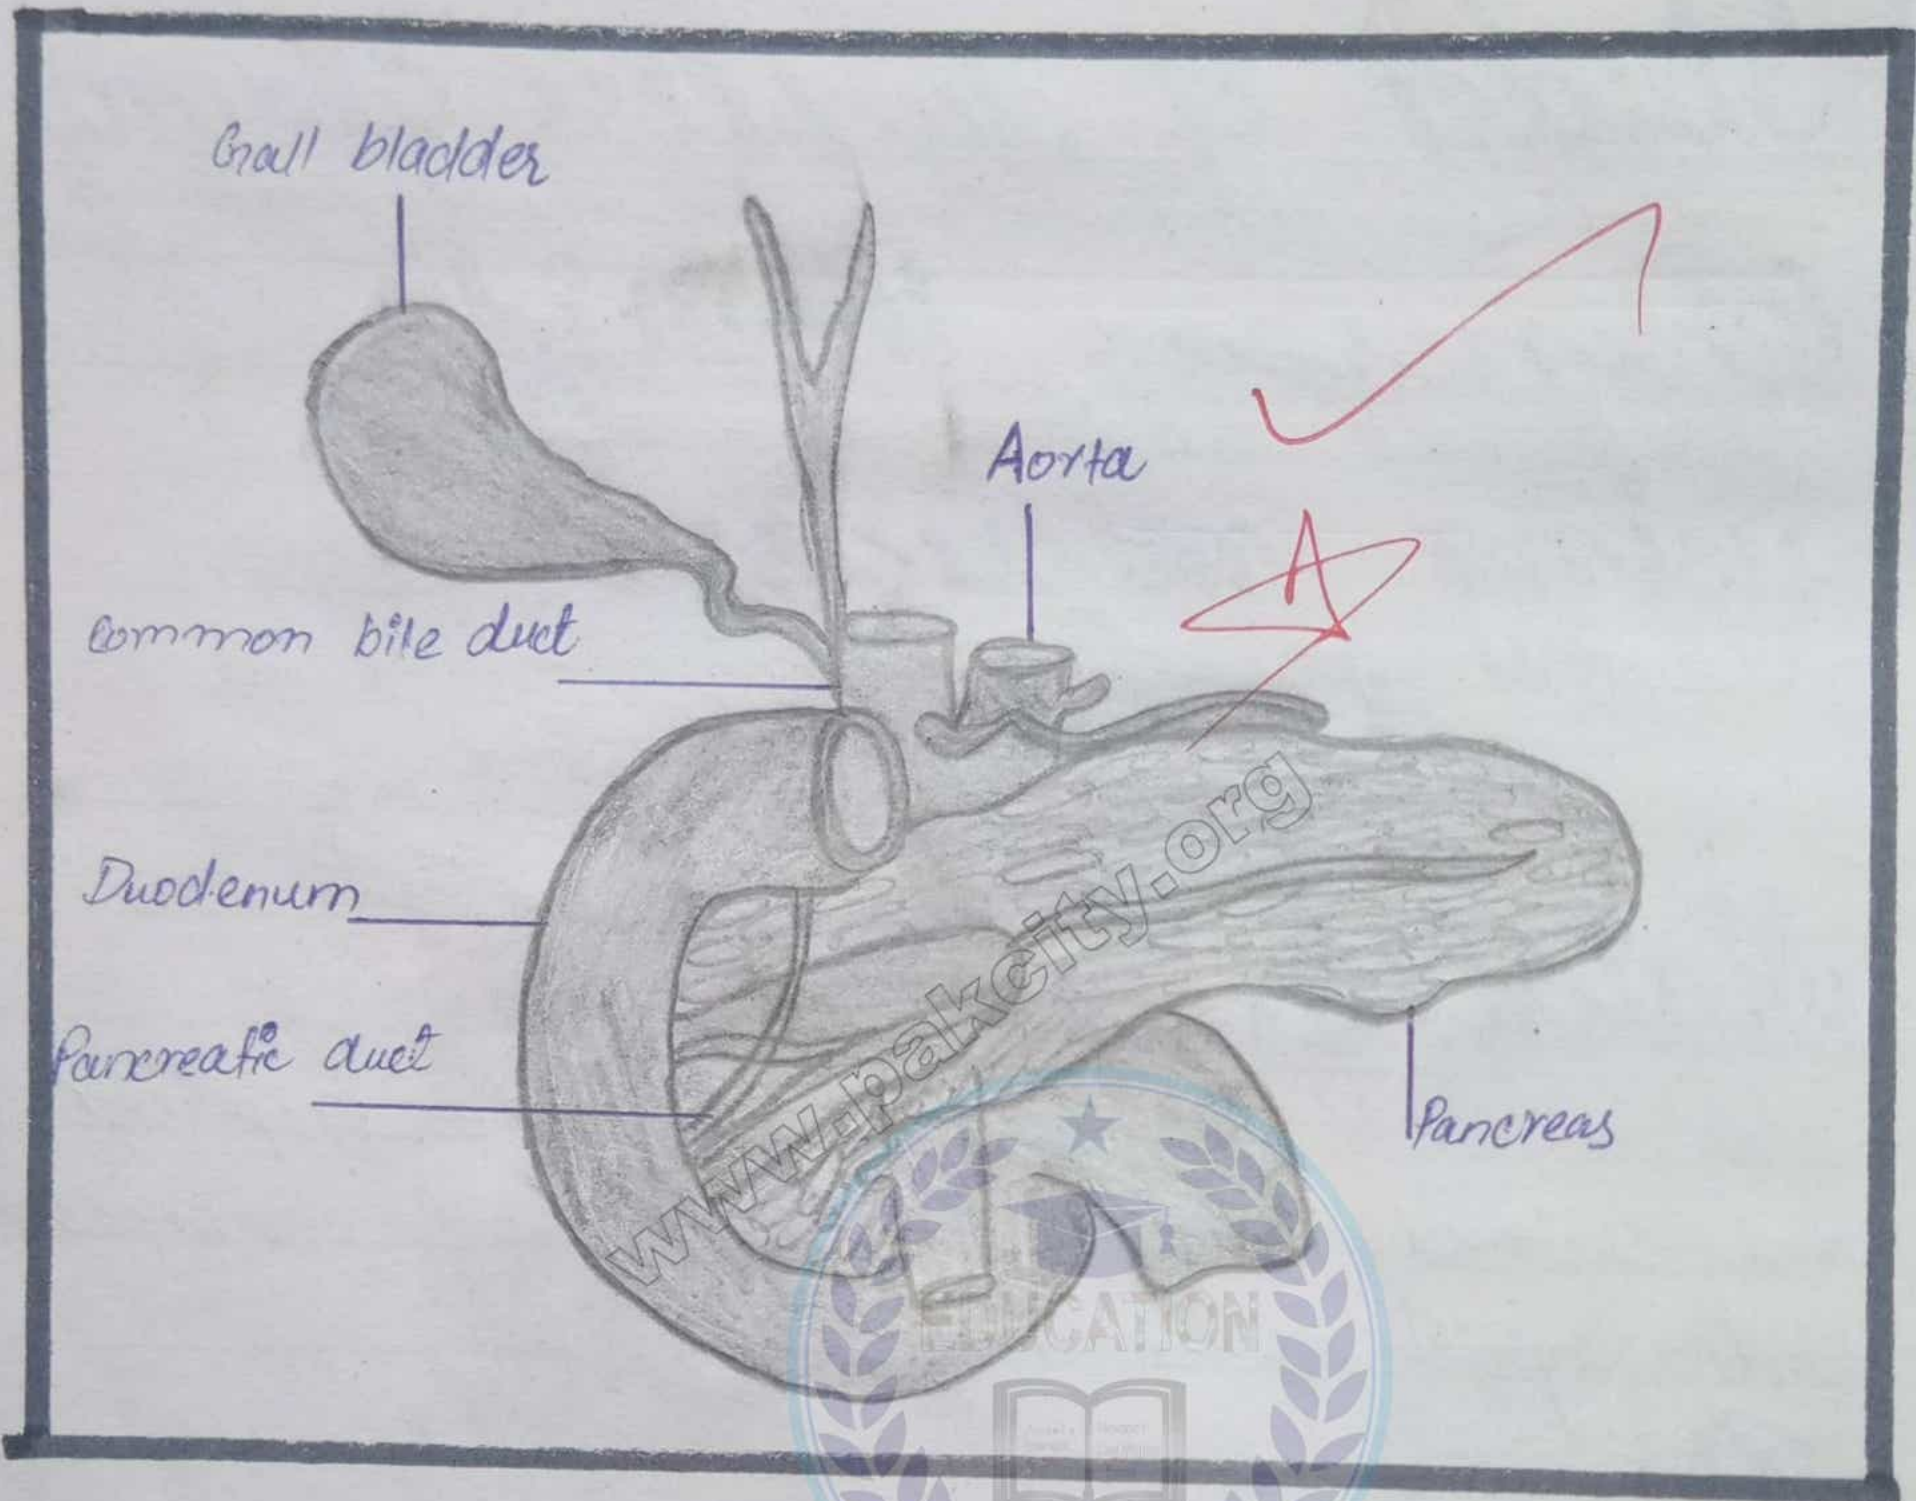 Gall bladder
Aorta
Common bile duct
Duodenum
Pancreatic duct
Pancreas
www.pakcity.org
EDUCATION